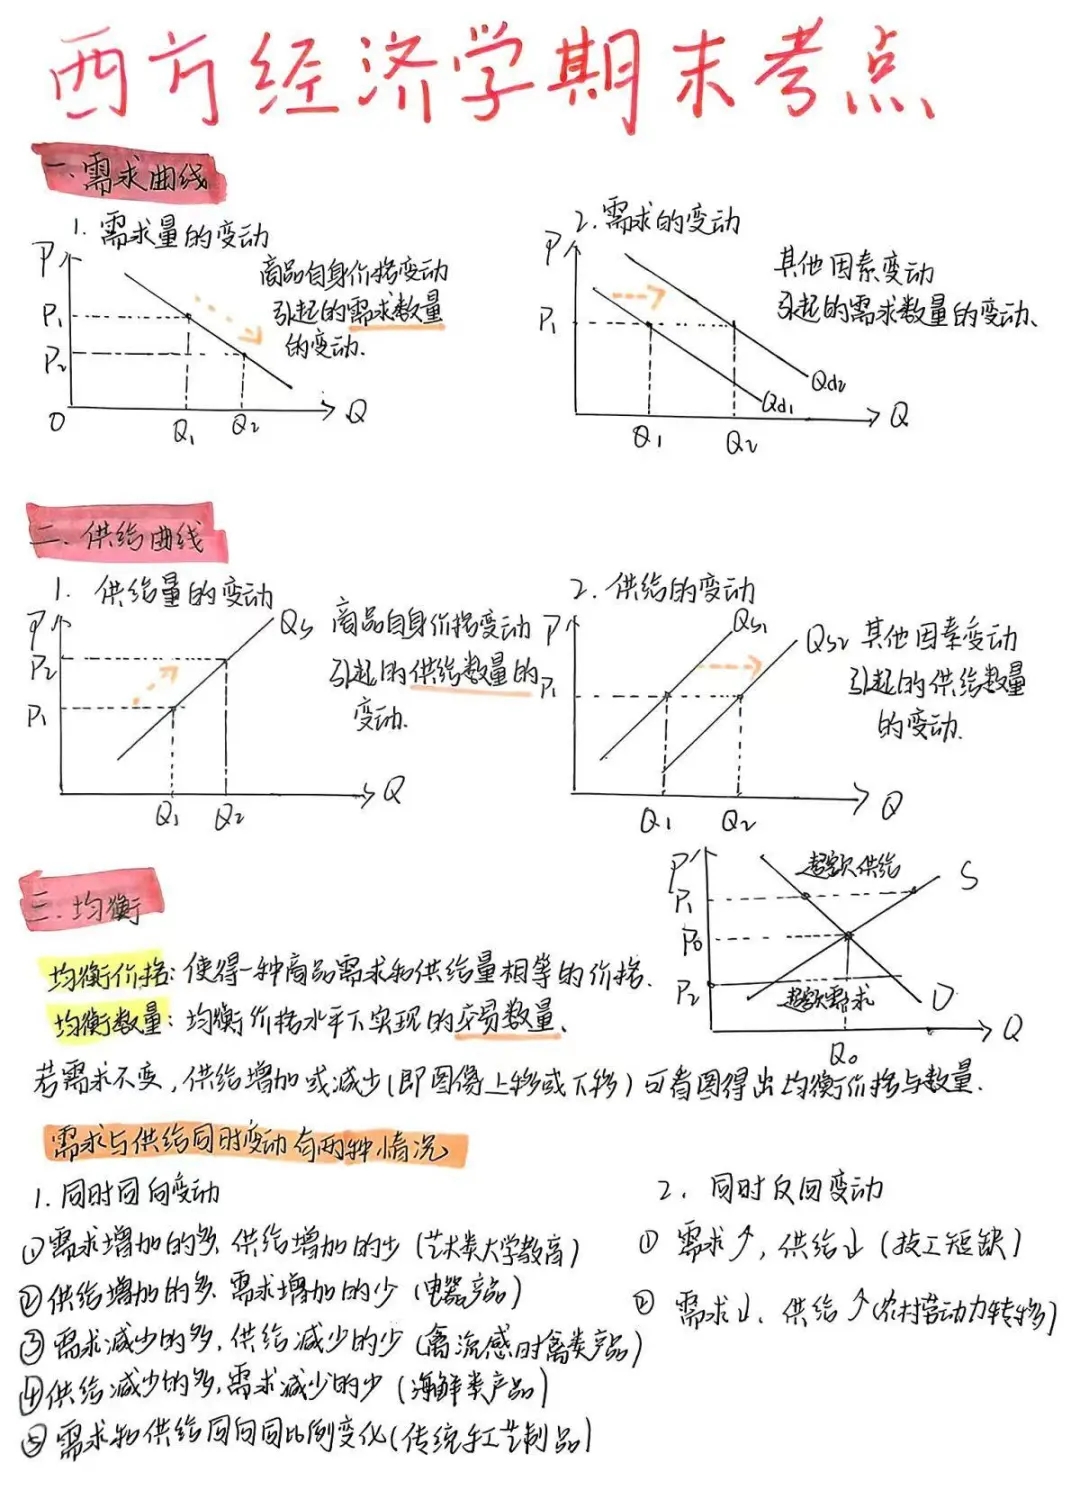 西方经济学期末考点
一.需求曲线
1. 需求量的变动
P
P1
P2
O
Q1
Q2
Q
商品自身价格变动
引起的需求数量
的变动.
2.需求的变动
P
P1
Q1
Q2
Q
Qd1
Qd2
其他因素变动
引起的需求数量的变动.
二.供给曲线
1. 供给量的变动
P
P2
P1
Q1
Q2
Q
Qs
商品自身价格变动
引起的供给数量的
变动.
2.供给的变动
P
P1
Q1
Q2
Q
Qs1
Qs2
其他因素变动
引起的供给数量
的变动.
三.均衡
P
P1
P0
P2
超额供给
超额需求
S
D
Q0
Q
均衡价格:使得一种商品需求和供给量相等的价格.
均衡数量:均衡价格水平下实现的交易数量.
若需求不变,供给增加或减少(即图像上移或下移)可看图得出均衡价格与数量.
需求与供给同时变动有两种情况
1.同时同向变动
①需求增加的多,供给增加的少(艺术类大学教育)
②供给增加的多,需求增加的少(电器产品)
③需求减少的多,供给减少的少(禽流感时禽类产品)
④供给减少的多,需求减少的少(海鲜类产品)
⑤需求和供给同向同比例变化(传统手工艺制品)
2. 同时反向变动
① 需求↑,供给↓(技工短缺)
② 需求↓,供给↑(农村劳动力转移)